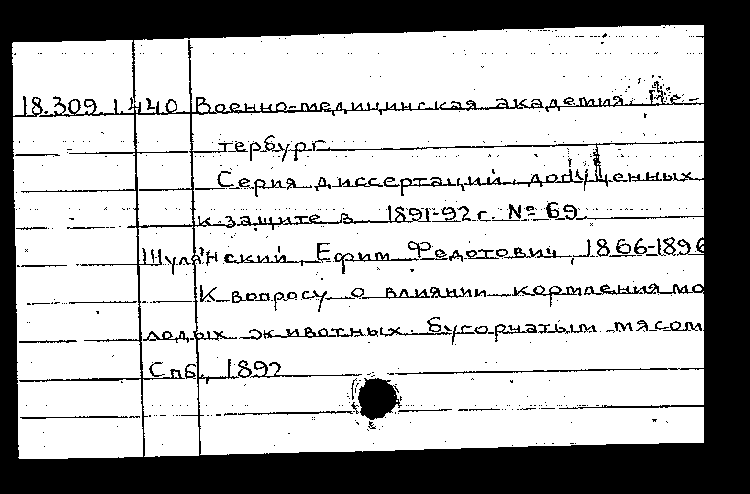 18.309.1.440 Военно-медицинская академия. Пе-
тербург.
Серия диссертаций, допущенных
к защите в 1891-92 г. № 69
Шулянский, Ефим Федотович, 1866-1896
К вопросу о влиянии кормления мо
лодых животных бугорчатым мясом
Спб., 1892